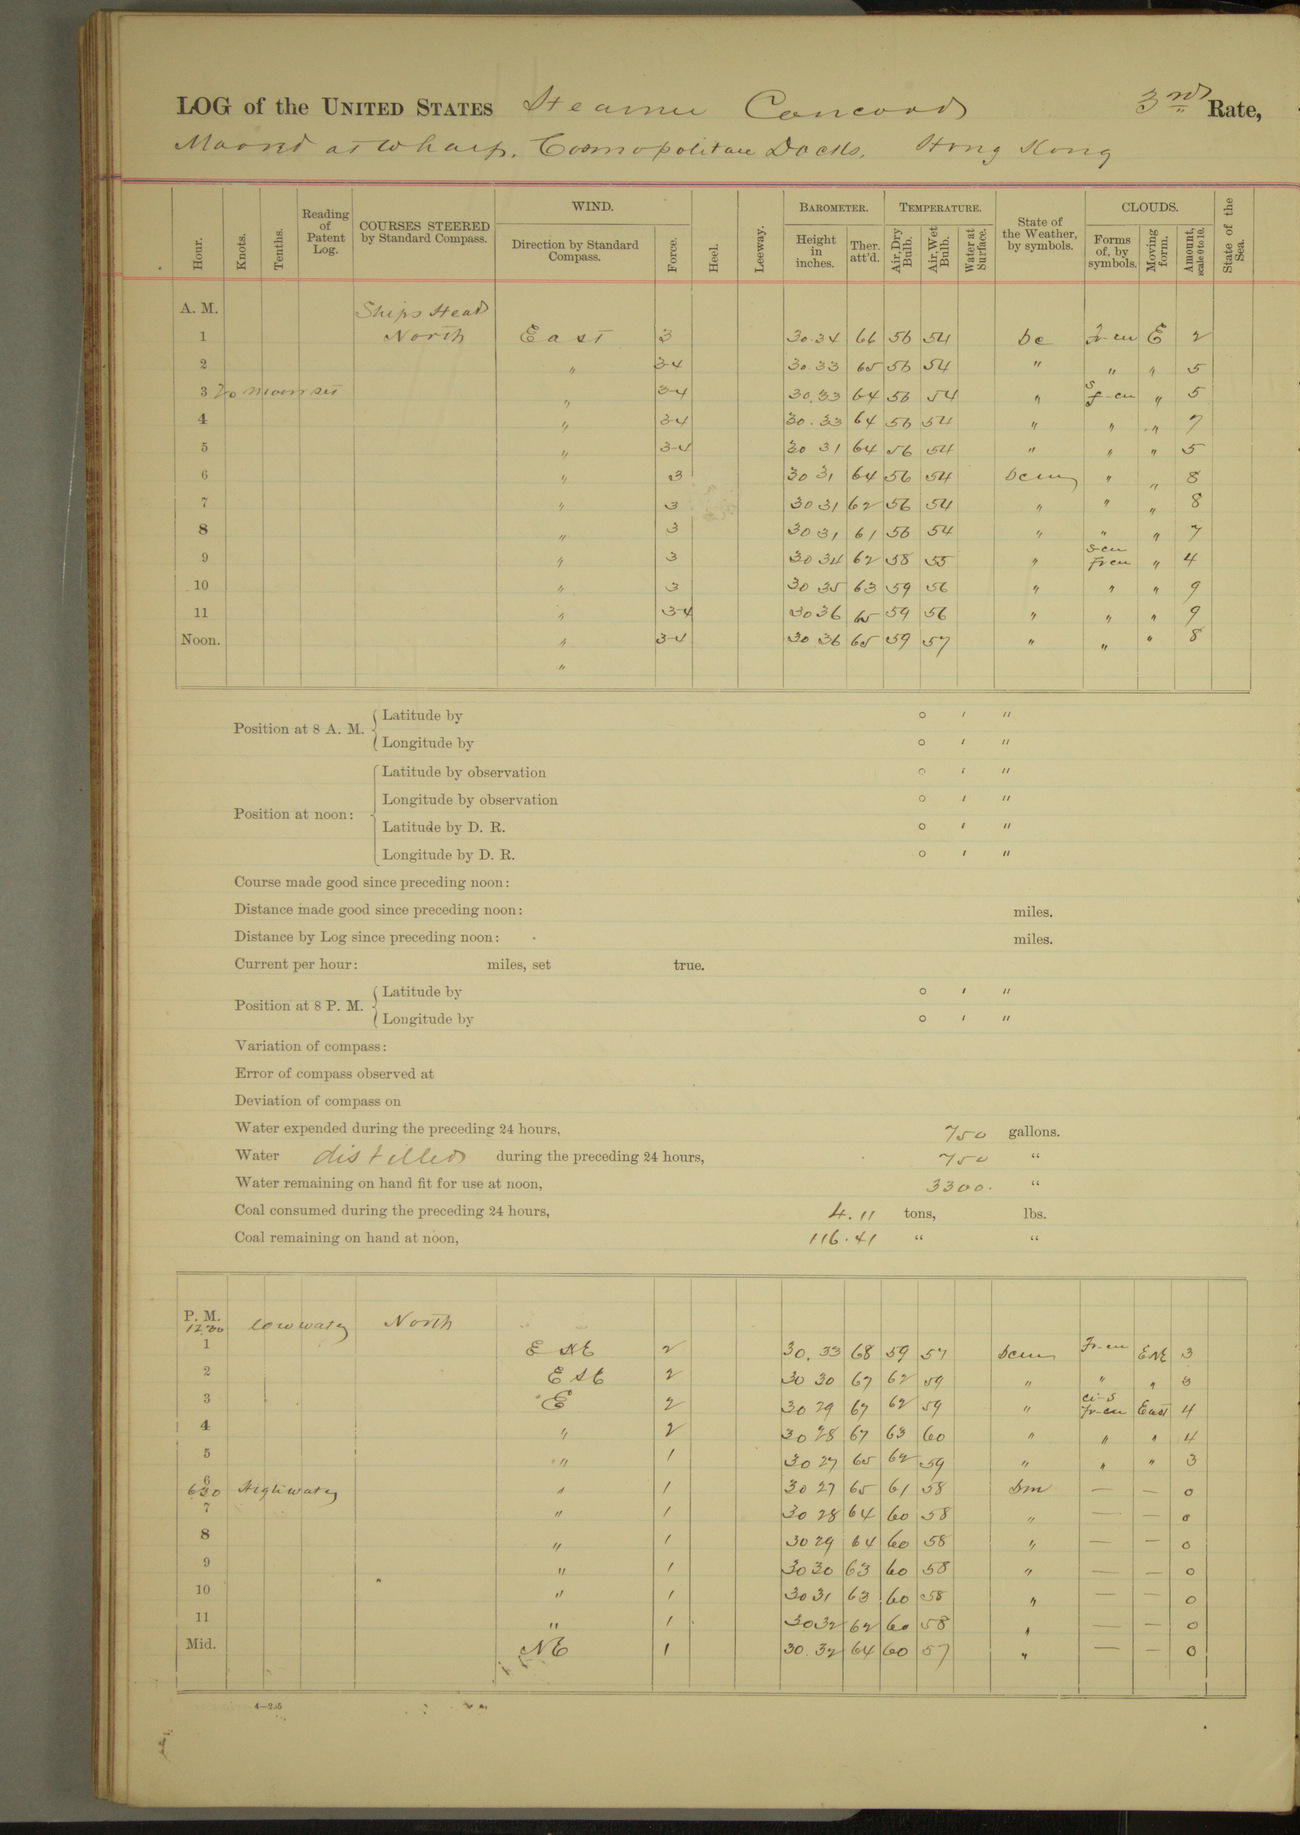 LOG of the UNITED STATES Steamer Concord 3rd Rate,
Moored at Wharf, Cosmopolitan Docks, Hong Kong
Hour. Knots. Tenths. Reading of Patent Log. COURSES STEERED by Standard Compass. WIND. Direction by Standard Compass. Force. Heel. Leeway. BAROMETER. Height in inches. Ther. att'd. TEMPERATURE. Air, Dry Bulb. Air, Wet Bulb. Water at Surface. State of the Weather, by symbols. CLOUDS. Forms of, by symbols. Moving form. Amount, scale 0 to 10. State of the Sea.
A. M. Ships Head
1 North East 3 30.34 66 56 54 bc fr-cu E 2
2 " 3-4 30.33 65 56 54 " " " 5
3 20 moon set " 3-4 30.33 64 56 54 " s f-cu " 5
4 " 3-4 30.33 64 56 54 " " " 7
5 " 3-4 30 31 64 56 54 " " " 5
6 " 3 30 31 64 56 54 bcm " " 8
7 " 3 30 31 62 56 54 " " " 8
8 " 3 30 31 61 56 54 " " " 7
9 " 3 30 34 62 58 55 " s-cu fr cu " 4
10 " 3 30 35 63 59 56 " " " 9
11 " 3-4 30 36 65 59 56 " " " 9
Noon. " 3-4 30 36 65 59 57 " " " 8
"
Position at 8 A. M. Latitude by ° ′ ″
Longitude by ° ′ ″
Position at noon: Latitude by observation ° ′ ″
Longitude by observation ° ′ ″
Latitude by D. R. ° ′ ″
Longitude by D. R. ° ′ ″
Course made good since preceding noon:
Distance made good since preceding noon: miles.
Distance by Log since preceding noon: miles.
Current per hour: miles, set true.
Position at 8 P. M. Latitude by ° ′ ″
Longitude by ° ′ ″
Variation of compass:
Error of compass observed at
Deviation of compass on
Water expended during the preceding 24 hours, 750 gallons.
Water distilled during the preceding 24 hours, 750 "
Water remaining on hand fit for use at noon, 3300. "
Coal consumed during the preceding 24 hours, 4.11 tons, lbs.
Coal remaining on hand at noon, 116.41 " "
P. M.
12 30 low water North
1 E NE 2 30.33 68 59 57 bcm Fr-cu ENE 3
2 ESE 2 30 30 67 62 59 " " " 3
3 E 2 30 29 67 62 59 " ci-s fr-cu East 4
4 " 2 30 28 67 63 60 " " " 4
5 " 1 30 27 65 62 59 " " " 3
6 " 1 30 27 65 61 58 bm — — 0
630 High water
7 " 1 30 28 64 60 58 " — — 0
8 " 1 30 29 64 60 58 " — — 0
9 " 1 30 30 63 60 58 " — — 0
10 " 1 30 31 63 60 58 " — — 0
11 " 1 30 32 62 60 58 " — — 0
Mid. NE 1 30.32 64 60 57 " — — 0